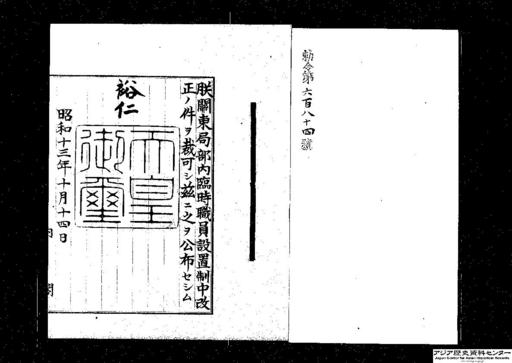 勅令第六百八十四號
朕關東局部內臨時職員設置制中改
正ノ件ヲ裁可シ茲ニ之ヲ公布セシム
裕仁
天皇御璽
昭和十三年十月十四日
內閣
アジア歴史資料センター
Japan Center for Asian Historical Records